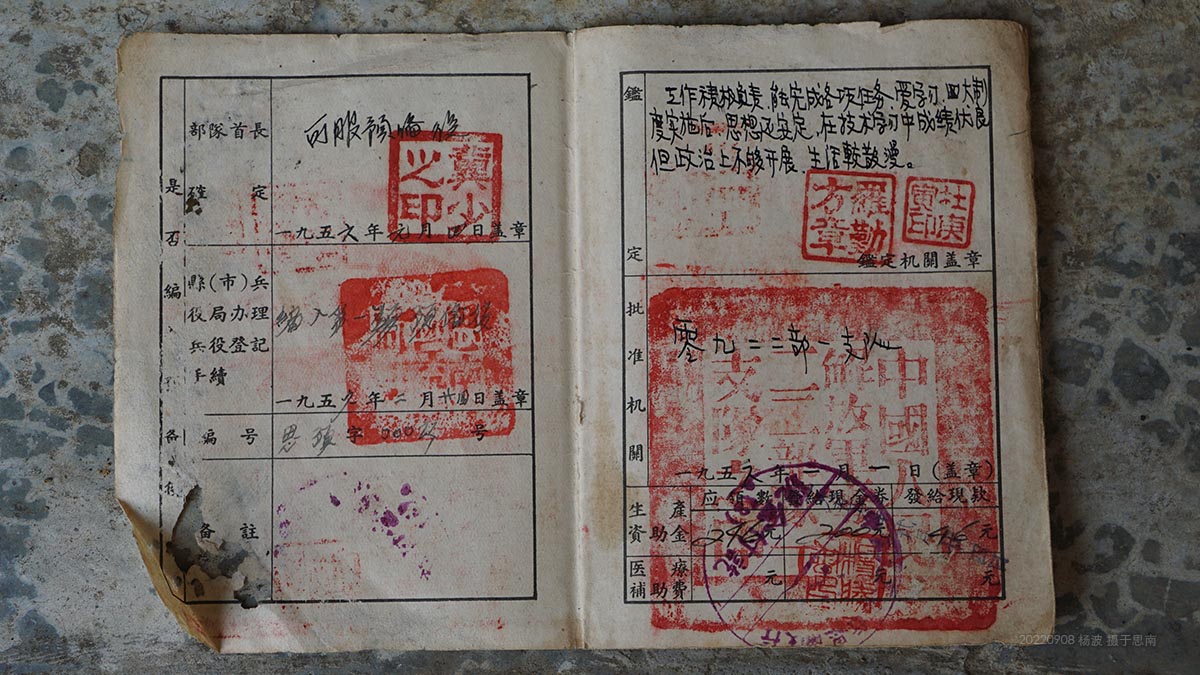 是否編
部隊首長
確定
可服預備役
冀少之印
一九五六年元月四日盖章
縣(市)兵
役局办理
兵役登記
手續
編入第一類預備役
一九五六年二月廿四日盖章
編号
思預字 号
备註
鑑定
工作積极負責,能完成各項任务,愛学习,四大制
度实施后,思想还安定,在技术学习中成績优良
但政治上不够开展,生活較散漫。
羅勒方章
杜庚寅印
鑑定机關盖章
批准机關
零九二二部一支队
中國
解放軍
一九五六年二月一日(盖章)
生産
資助金
应領數
發給現款
296元
元
元
医療
補助費
元
元
元
20220908 杨波 摄于思南